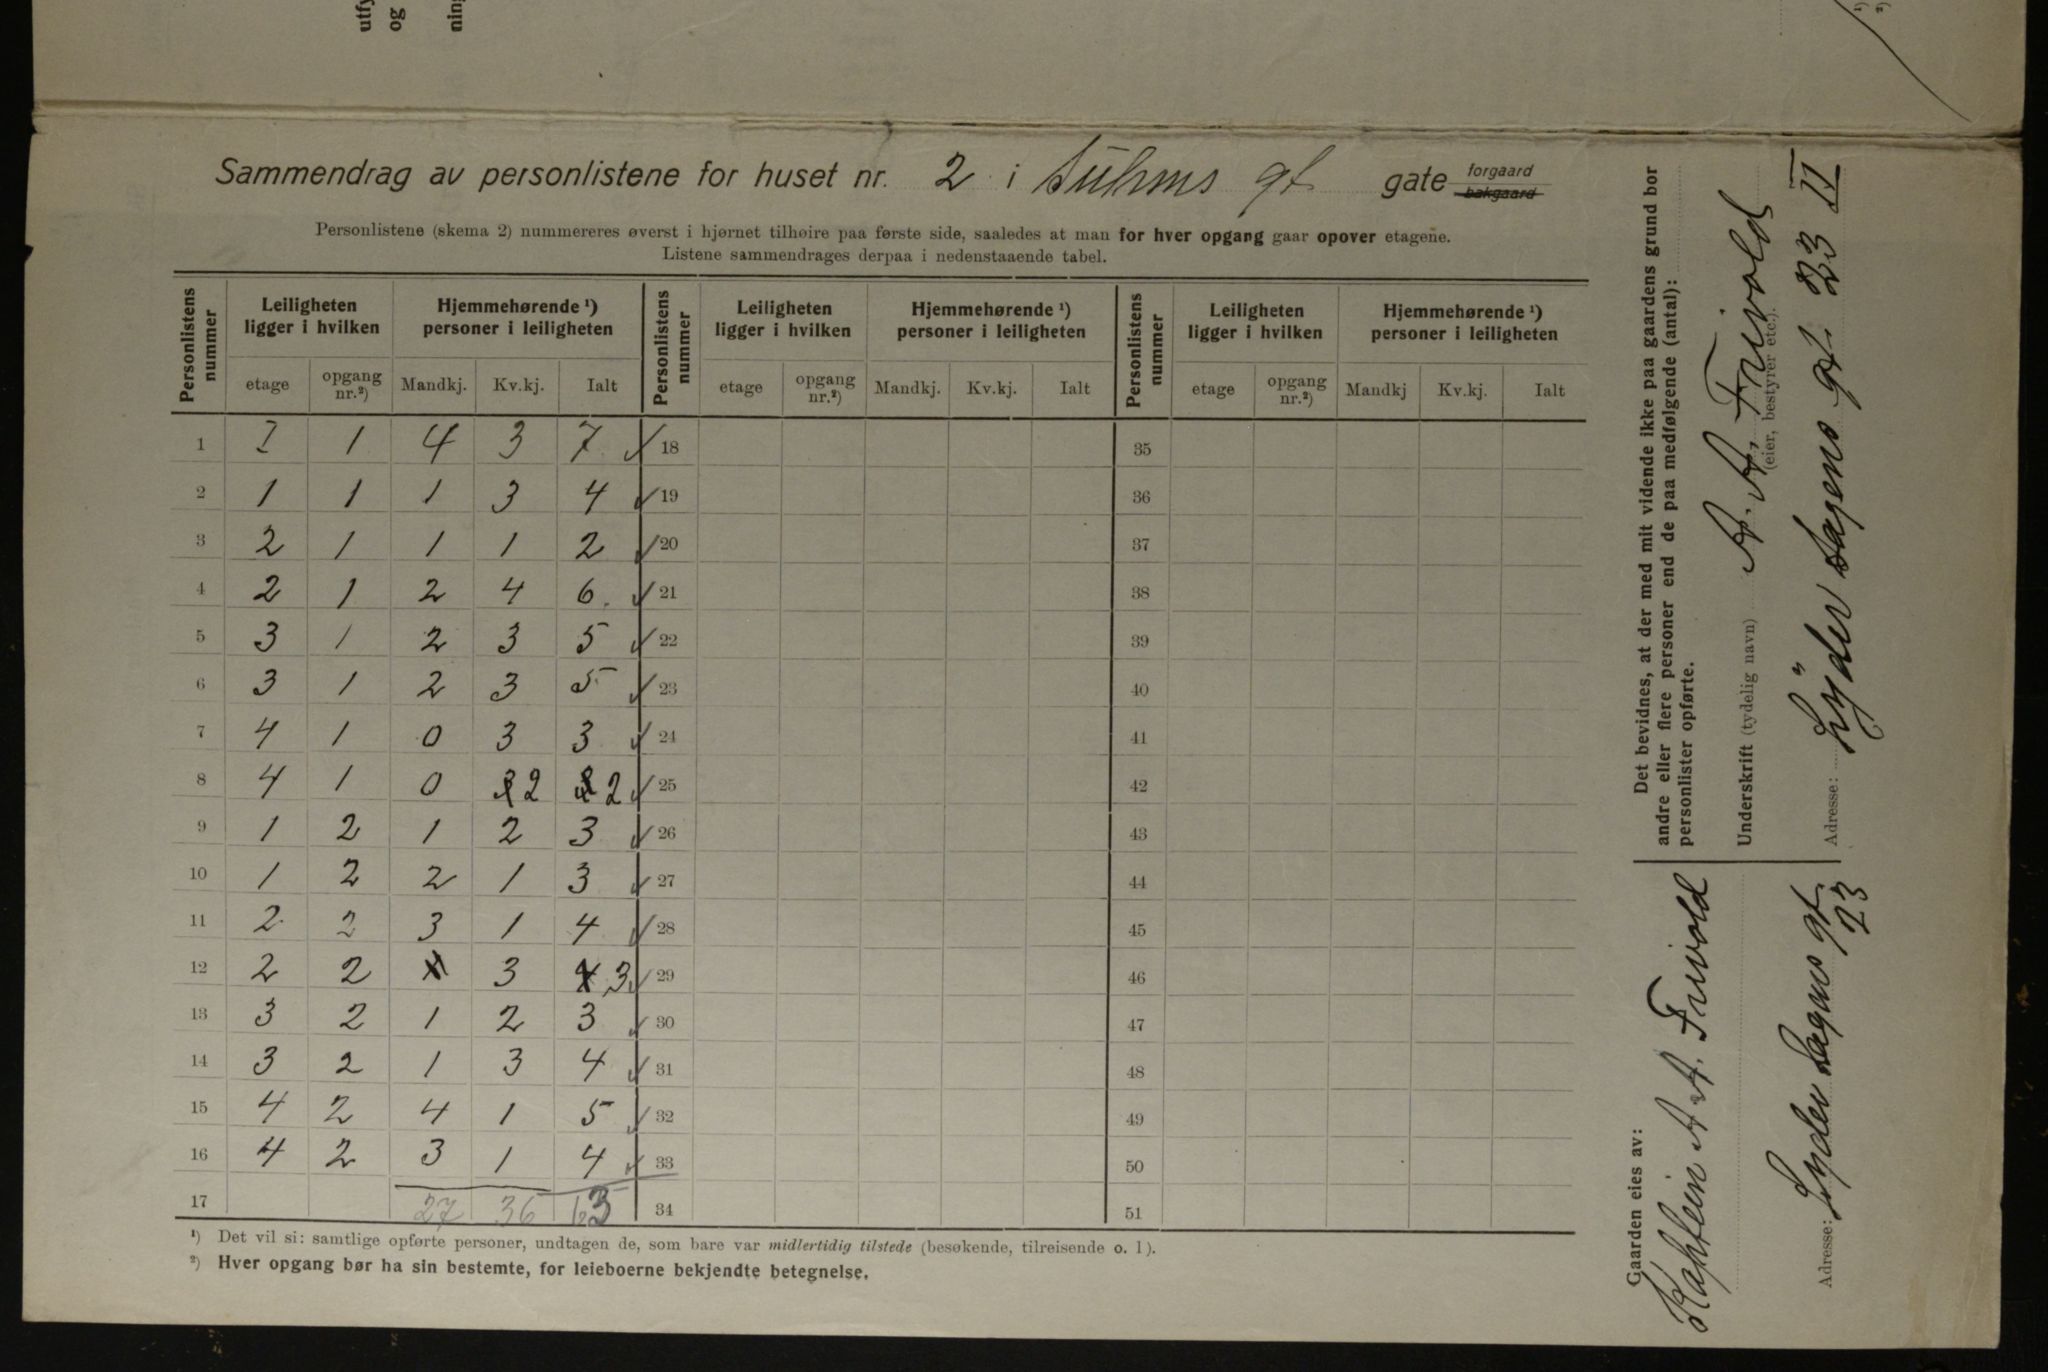 utfy
og
ning
1)
2)
Sammendrag av personlistene for huset nr. 2 i Suhms gt. gate forgaard bakgaard
Personlistene (skema 2) nummereres øverst i hjørnet tilhøire paa første side, saaledes at man for hver opgang gaar opover etagene.
Listene sammendrages derpaa i nedenstaaende tabel.
Personlistens nummer | Leiligheten ligger i hvilken | Hjemmehørende ¹) personer i leiligheten | Personlistens nummer | Leiligheten ligger i hvilken | Hjemmehørende ¹) personer i leiligheten | Personlistens nummer | Leiligheten ligger i hvilken | Hjemmehørende ¹) personer i leiligheten
etage | opgang nr.²) | Mandkj. | Kv.kj. | Ialt | etage | opgang nr.²) | Mandkj. | Kv.kj. | Ialt | etage | opgang nr.²) | Mandkj | Kv.kj. | Ialt
1 I 1 4 3 7 ✓ 18 35
2 1 1 1 3 4 ✓ 19 36
3 2 1 1 1 2 ✓ 20 37
4 2 1 2 4 6. ✓ 21 38
5 3 1 2 3 5 ✓ 22 39
6 3 1 2 3 5 ✓ 23 40
7 4 1 0 3 3 ✓ 24 41
8 4 1 0 2 2 ✓ 25 42
9 1 2 1 2 3 ✓ 26 43
10 1 2 2 1 3 ✓ 27 44
11 2 2 3 1 4 ✓ 28 45
12 2 2 3 3 ✓ 29 46
13 3 2 1 2 3 ✓ 30 47
14 3 2 1 3 4 ✓ 31 48
15 4 2 4 1 5 ✓ 32 49
16 4 2 3 1 4 ✓ 33 50
17 27 36 63 34 51
¹) Det vil si: samtlige opførte personer, undtagen de, som bare var midlertidig tilstede (besøkende, tilreisende o. l).
²) Hver opgang bør ha sin bestemte, for leieboerne bekjendte betegnelse.
Det bevidnes, at der med mit vidende ikke paa gaardens grund bor
andre eller flere personer end de paa medfølgende (antal):
personlister opførte.
Underskrift (tydelig navn) A. A. Frivold
(eier, bestyrer etc.).
Adresse: Lyder Sagens gt. 23 II
Gaarden eies av:
Kaptein A. A. Frivold
Adresse: Lyder Sagens gt.
23